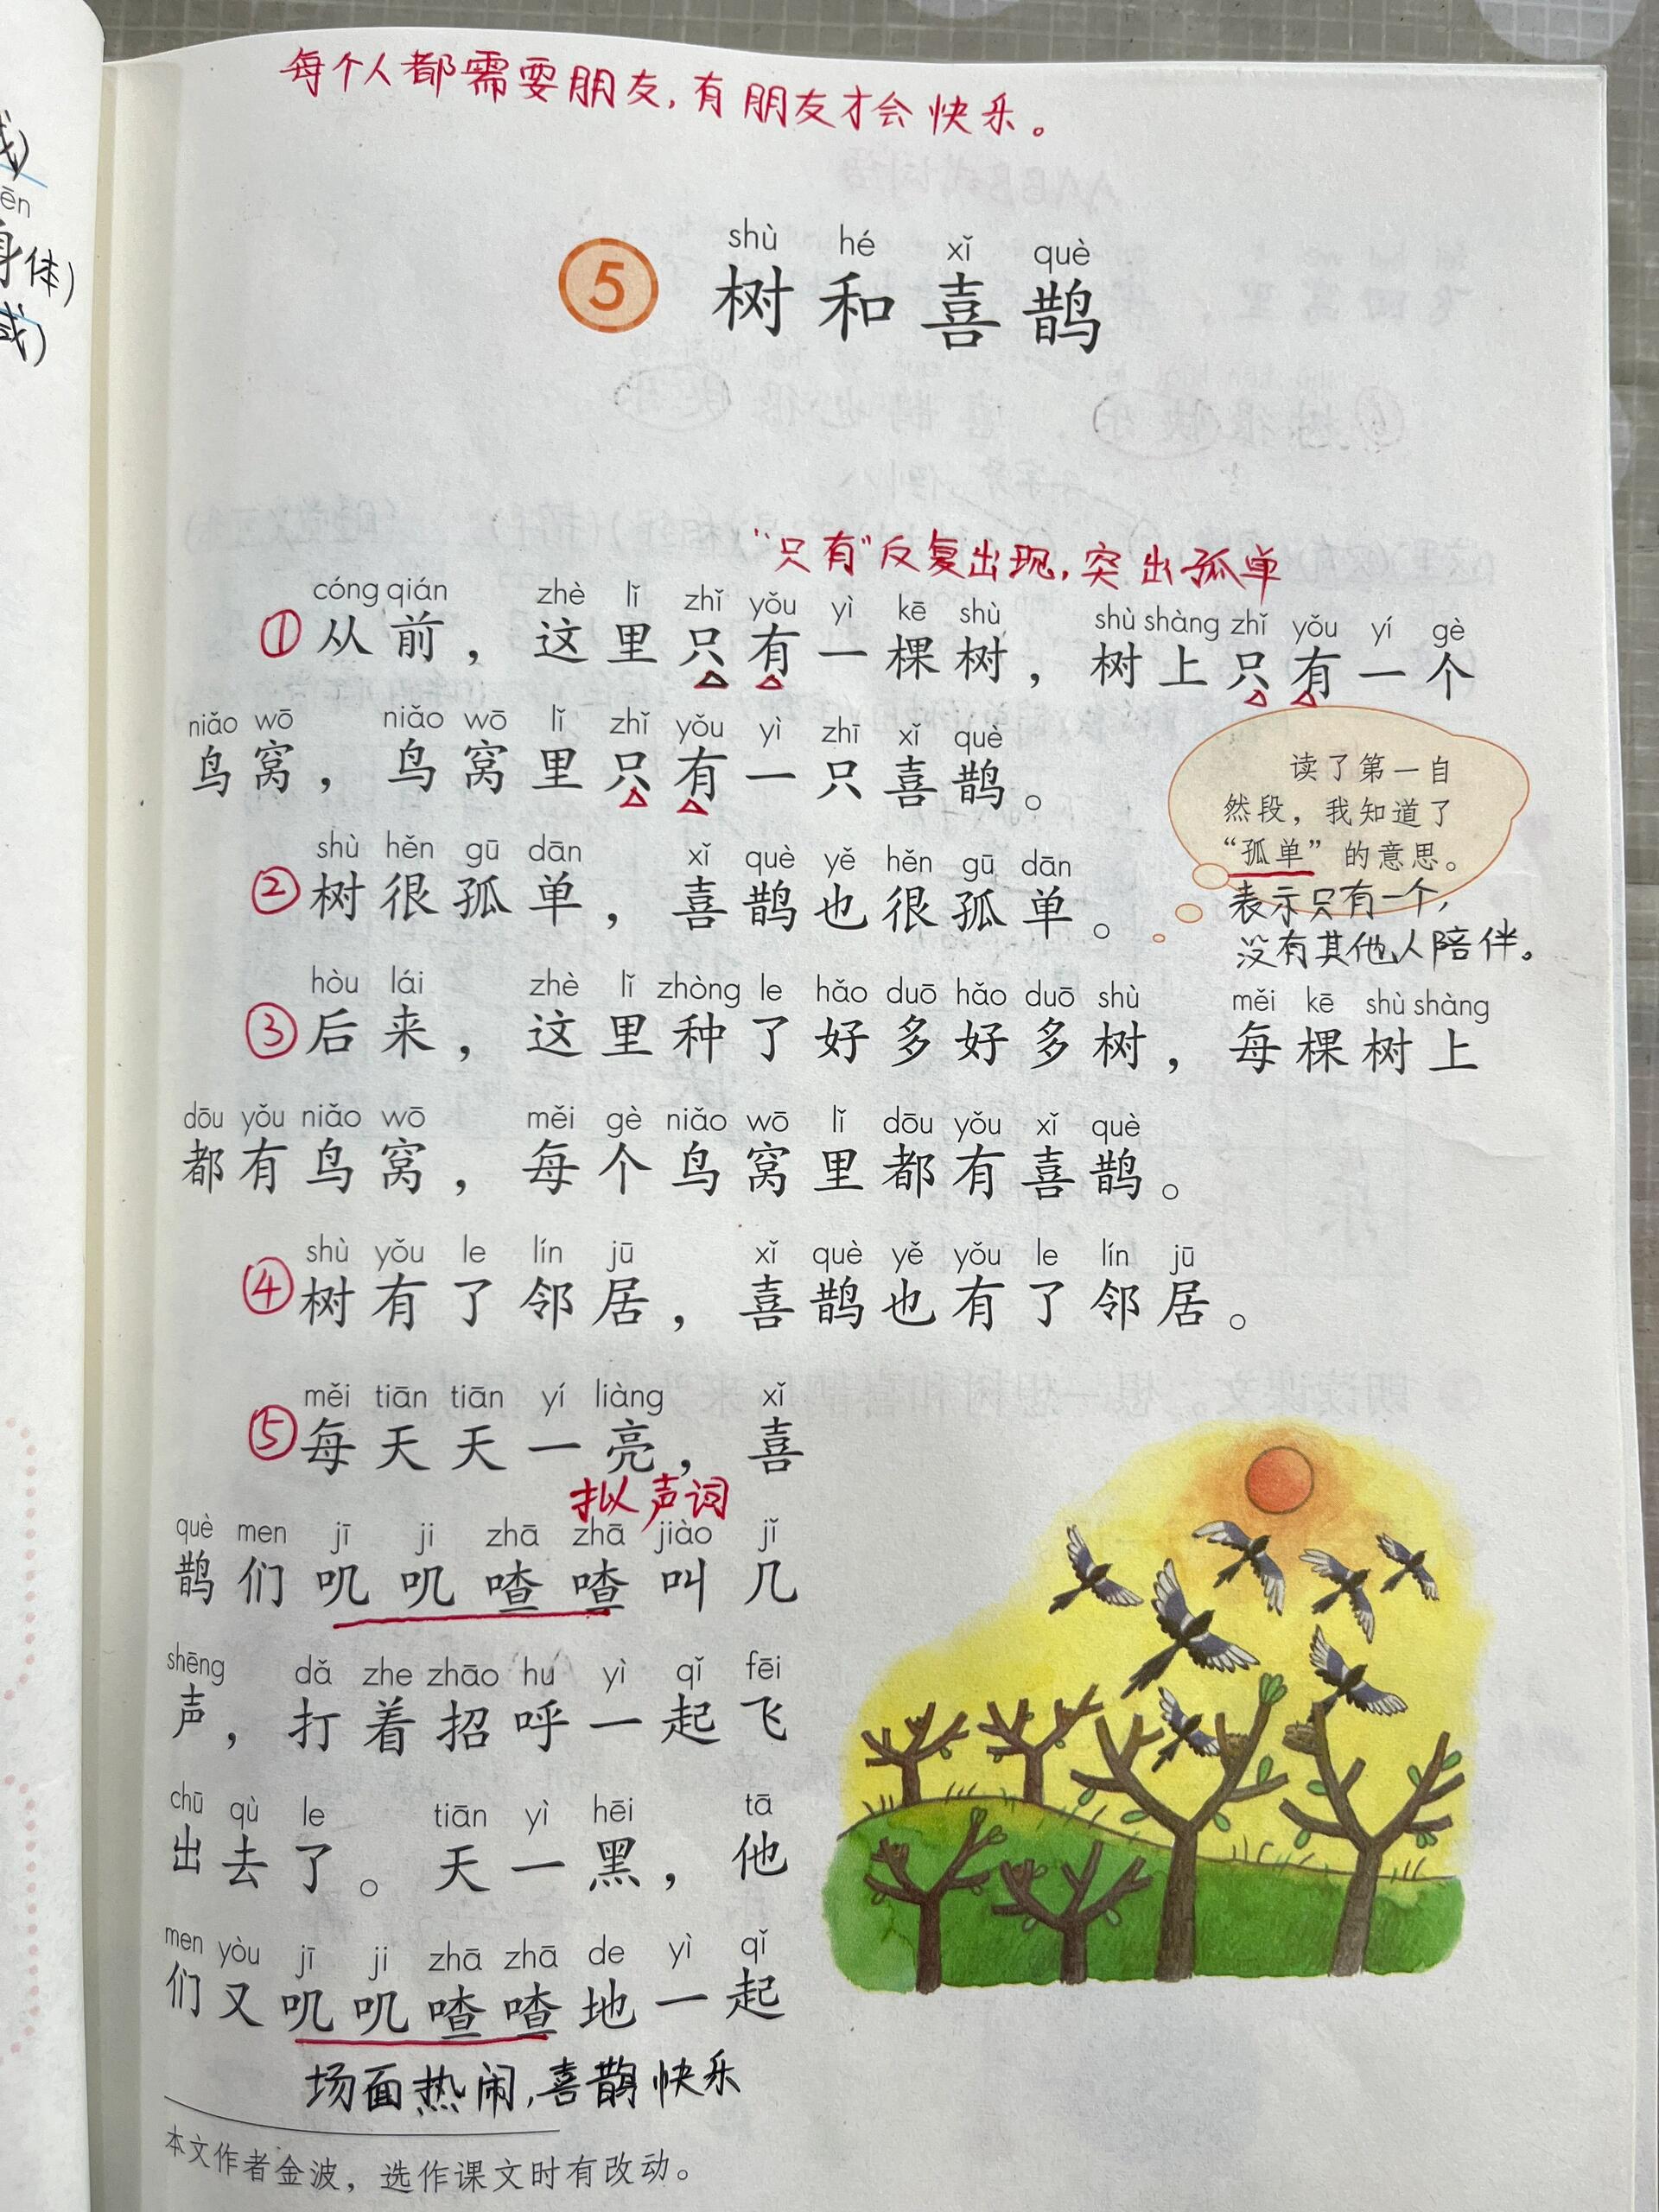 每个人都需要朋友，有朋友才会快乐。
shù hé xǐ què
5 树和喜鹊
“只有”反复出现，突出孤单
cóng qián zhè lǐ zhǐ yǒu yì kē shù shù shàng zhǐ yǒu yí gè
①从前，这里只有一棵树，树上只有一个
niǎo wō niǎo wō lǐ zhǐ yǒu yì zhī xǐ què
鸟窝，鸟窝里只有一只喜鹊。
读了第一自
然段，我知道了
“孤单”的意思。
表示只有一个，
没有其他人陪伴。
shù hěn gū dān xǐ què yě hěn gū dān
②树很孤单，喜鹊也很孤单。
hòu lái zhè lǐ zhòng le hǎo duō hǎo duō shù měi kē shù shàng
③后来，这里种了好多好多树，每棵树上
dōu yǒu niǎo wō měi gè niǎo wō lǐ dōu yǒu xǐ què
都有鸟窝，每个鸟窝里都有喜鹊。
shù yǒu le lín jū xǐ què yě yǒu le lín jū
④树有了邻居，喜鹊也有了邻居。
měi tiān tiān yí liàng xǐ
⑤每天天一亮，喜
拟声词
què men jī ji zhā zhā jiào jǐ
鹊们叽叽喳喳叫几
shēng dǎ zhe zhāo hu yì qǐ fēi
声，打着招呼一起飞
chū qù le tiān yì hēi tā
出去了。天一黑，他
men yòu jī ji zhā zhā de yì qǐ
们又叽叽喳喳地一起
场面热闹，喜鹊快乐
本文作者金波，选作课文时有改动。
ēn
身体）